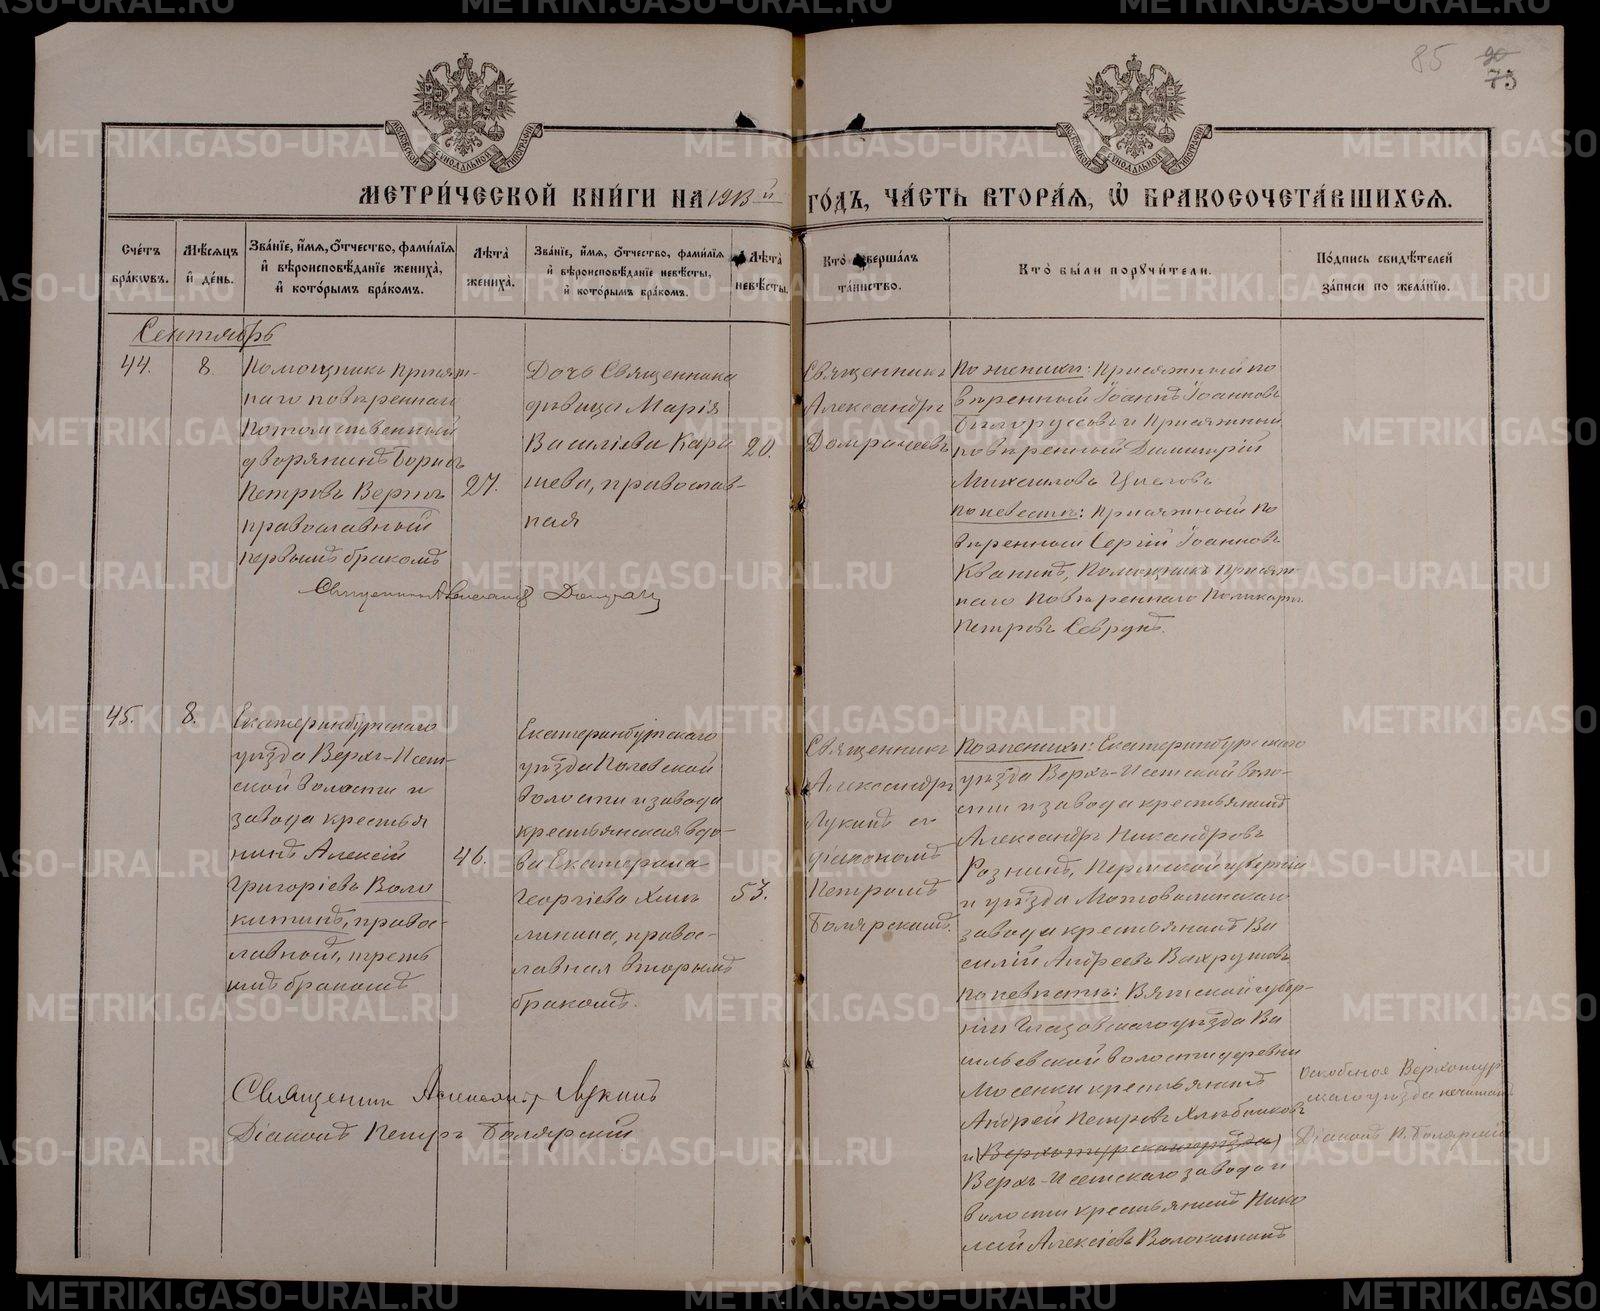 85 90
73
МОСКОВСКОЙ СѴНОДАЛЬНОЙ ТИПОГРАФІИ
МОСКОВСКОЙ СѴНОДАЛЬНОЙ ТИПОГРАФІИ
МЕТРИ́ЧЕСКОЙ КНИ́ГИ НА 1913й ГО́ДЪ, ЧА́СТЬ ВТОРА́Я, Ѡ БРАКОСОЧЕТА́ВШИХСЯ.
Сче́тъ бра́ковъ.
Мѣ́сяцъ и де́нь.
Зва́ніе, и́мя, о́тчество, фами́лія и вѣроисповѣ́даніе жениха̀, и кото́рымъ бра́комъ.
Лѣта̀ жениха̀.
Зва́ніе, и́мя, о́тчество, фами́лія и вѣроисповѣ́даніе невѣ́сты, и кото́рымъ бра́комъ.
Лѣта̀ невѣ́сты.
Кто̀ соверша́лъ та́инство.
Кто̀ бы́ли поручи́тели.
По́дпись свидѣ́телей за́писи по жела́нію.
Сентябрь
44.
8.
Помощникъ Присяж-
наго повѣреннаго
Потомственный
дворянинъ Борисъ
Петровъ Вернъ
православный
первымъ бракомъ
27.
Дочь Священника
дѣвица Марія
Василіева Кары
шева, православ-
ная
20.
Священникъ
Александръ
Домрачеевъ
По женихѣ: Присяжный по
вѣренный Іоаннъ Іоанновъ
Бѣлорусовъ и Присяжный
повѣренный Димитрій
Михаиловъ
По невѣстѣ: Присяжный по
вѣренный Сергій Іоанновъ
Помощникъ Присяж
наго Повѣреннаго Поликарпъ
Петровъ
Священникъ Александр
45.
8.
Екатеринбургскаго
уѣзда Верхъ-Исет-
ской волости и
завода крестья
нинъ Алексій
Григоріевъ Воло
китинъ, право-
славной, треть
имъ бракомъ
46.
Екатеринбургскаго
уѣзда Полевской
волости и завода
крестьянская вдо-
ва Екатерина
Георгіева Хмы
линина, право-
славная вторымъ
бракомъ.
53.
Священникъ
Александръ
Лукинъ съ
діакономъ
Петромъ
Болярскимъ.
По женихѣ: Екатеринбургскаго
уѣзда Верхъ-Исетской воло-
сти и завода крестьянинъ
Александръ Никандровъ
Рознинъ, Пермской губерніи
и уѣзда Мотовилихинскаго
завода крестьянинъ Ва
силій Андреевъ Вахрушевъ
По невѣстѣ: Вятской губер-
ніи Глазовскаго уѣзда Ва
сильевской волости деревни
Мосенки крестьянинъ
Андрей Петровъ Хлѣбниковъ
и (Верхотурскаго уѣзда)
Верхъ-Исетскаго завода и
волости крестьянинъ Нико
лай Алексіевъ Волокитинъ
Священникъ Александръ Лукинъ
Діаконъ Петръ Болярскій
скобками Верхотур
скаго уѣзда не читать
Діаконъ П. Болярскій
METRIKI.GASO-URAL.RU